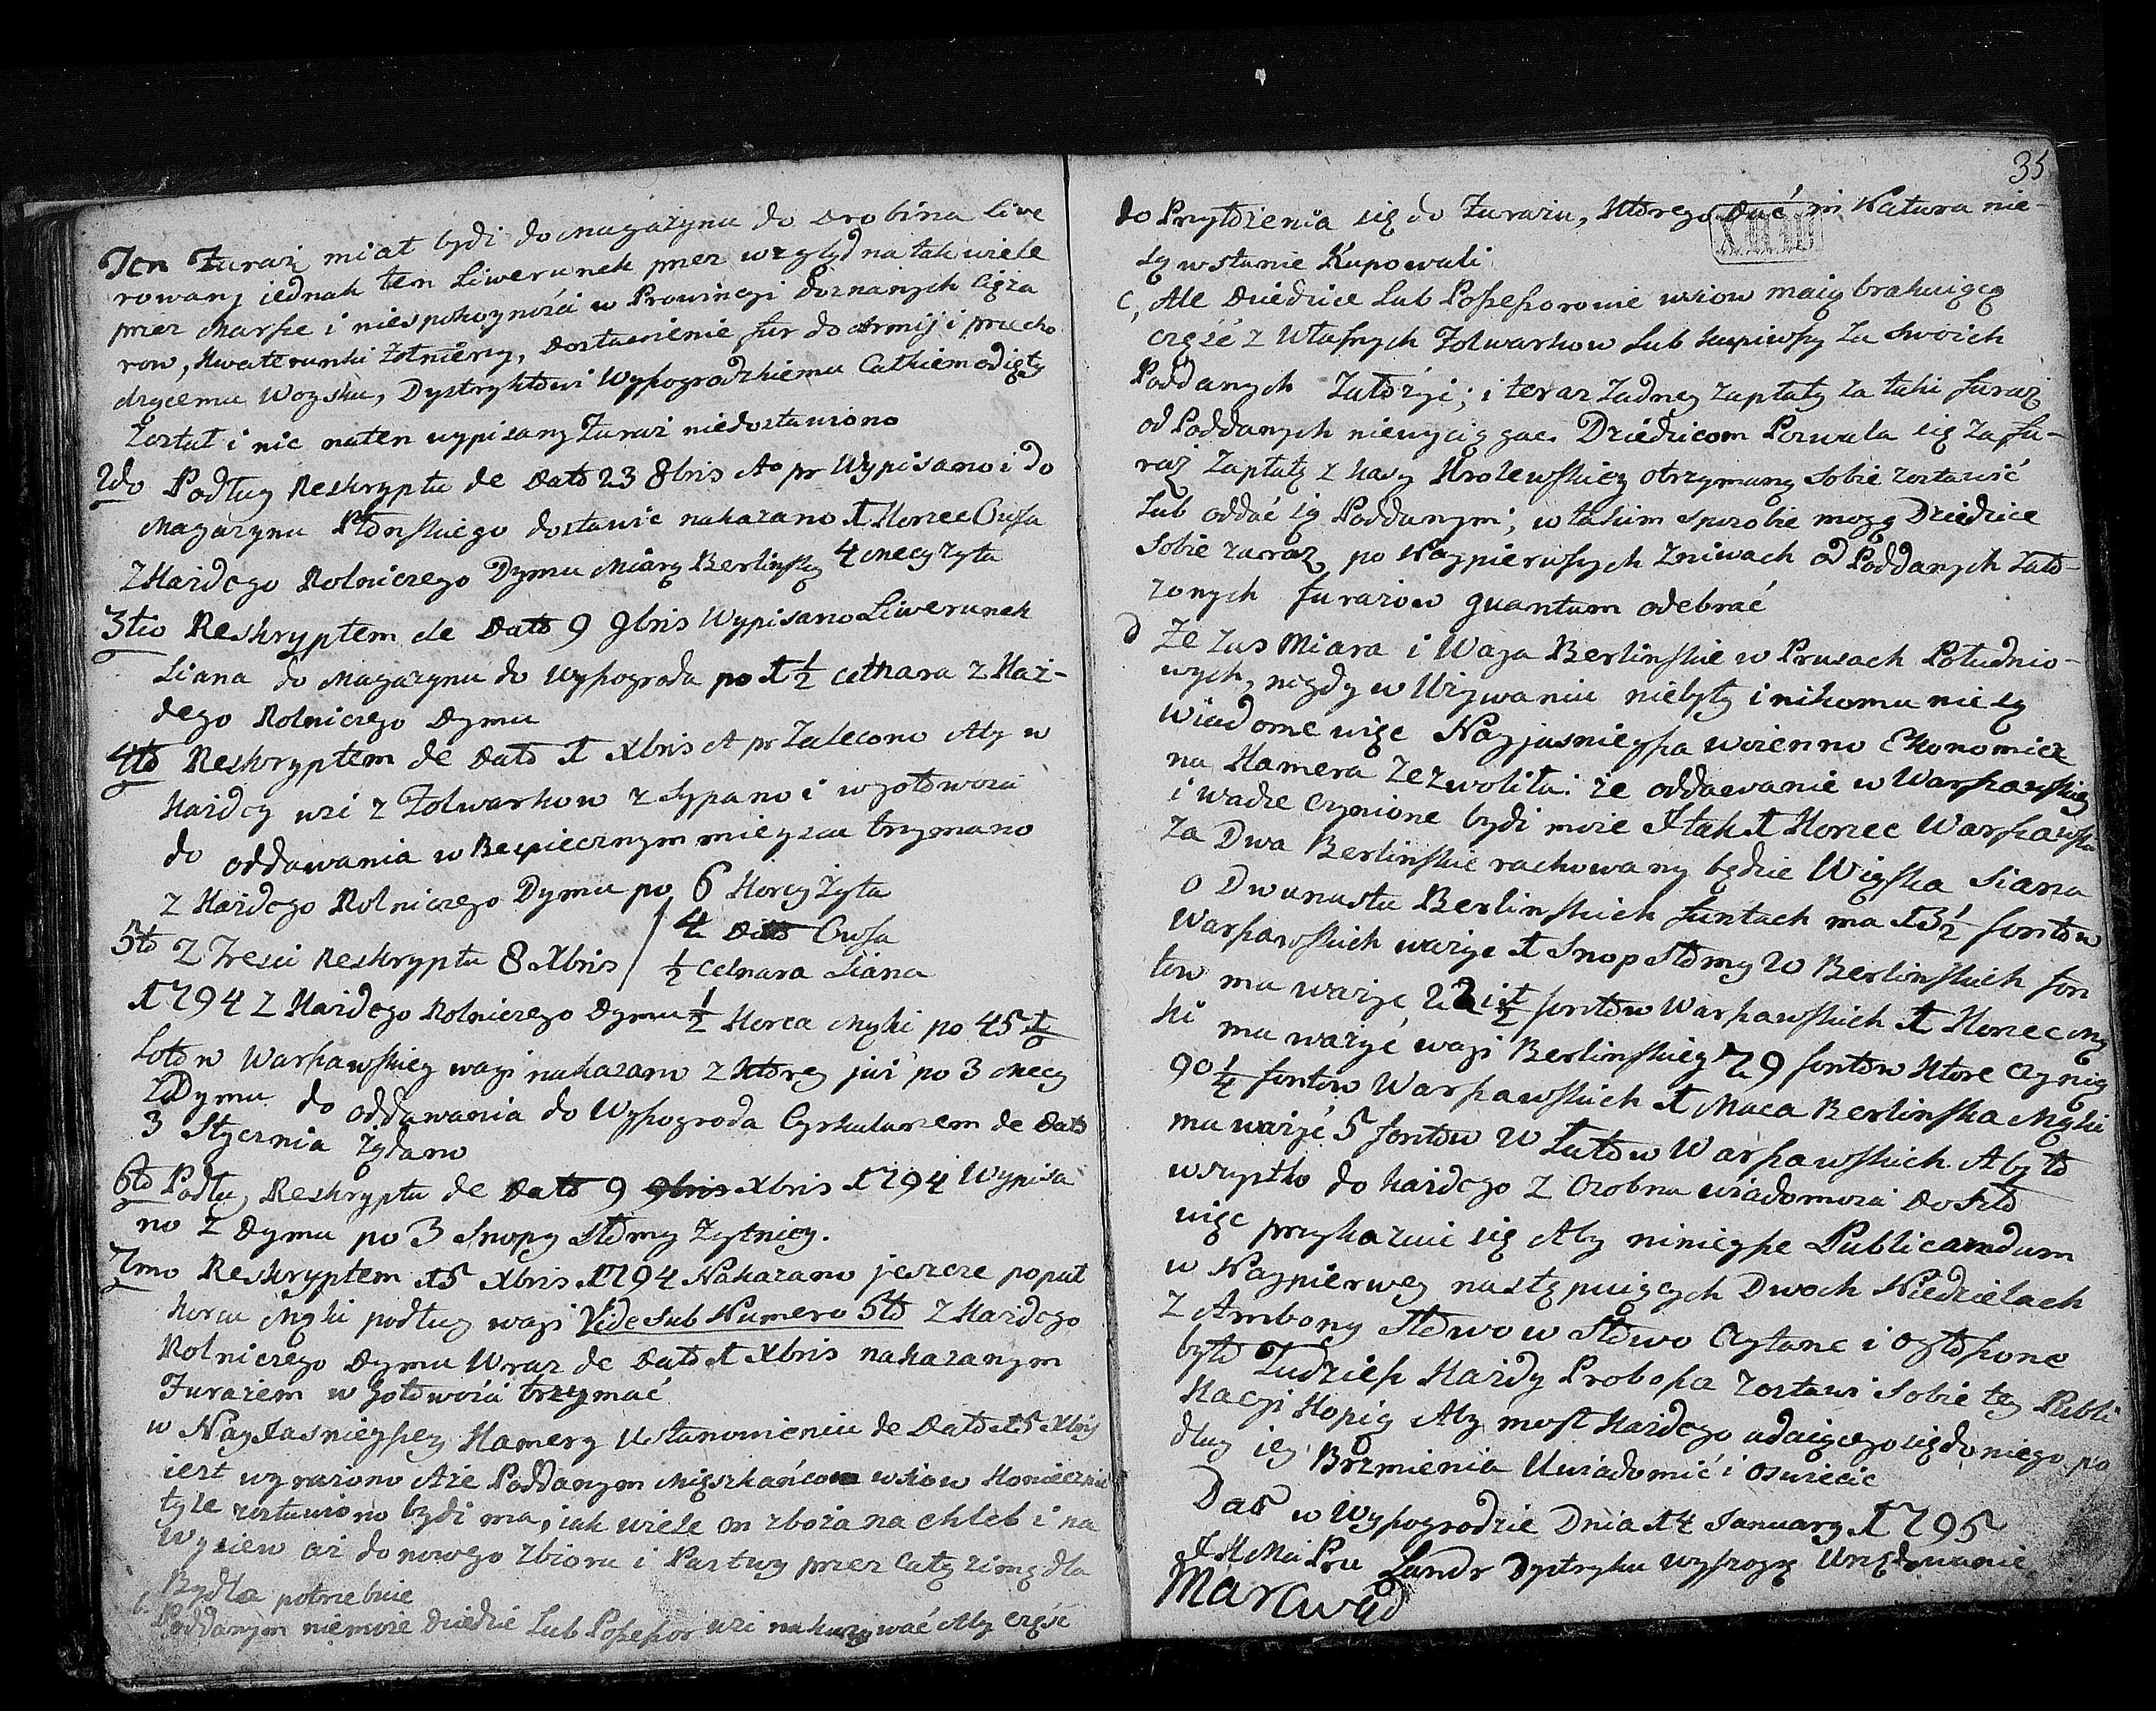 Ten Furaż miał bydź do magażynu do Drobina live
rowany iednak ten Liwerunek przez wzgląd na tak wiele
przez Marsze i niespokoyności w Prowincyi doznanych cięża
row, Kwaterunki Zołnierzy, Dostawienie fur do Armij i przecho
dzącemu Woysku, Dystryktowi Wyszogrodzkiemu Całkiem odięty
Został i nic na ten wypisany Furaż niedostawiono
2do Podług Reskryptu de Dato 23 8bris Ao pr Wypisano i do
Magazynu Płonskiego dostawic nakazano 1 Korzec Owsa
z Każdego Rolniczego Dymu Miary Berlinskiey 4 Mecy żyta
3tio Reskryptem de Dato 9 9bris Wypisano Liwerunek
Siana do Magazynu do Wyszogroda po 1 1/2 Cetnara z Każ-
dego Rolniczego Dymu
4to Reskryptem de Dato 1 Xbris A pr Zalecono Aby w
Każdey wsi z Folwarkow zsypano i w gotowości
do oddawania w Bezpiecznym mieyscu trzymano
z Każdego Rolniczego Dymu po 6 Korcy Żyta
4 Dito Owsa
5to Z Tresci Reskryptu 8 Xbris / 1/2 Cetnara Siana
1794 z Każdego Rolniczego Dymu 1/2 Korca Mąki po 45 1/2
Łotow Warszawskiey wagi nakazano z Ktorey już po 3 Mecy
z Dymu do oddawania do Wyszogroda Cyrkularzem de Dato
3 Stycznia żądano
6to Podług Reskryptu de Dato 9 9bris Xbris 1794 Wypisa
no z Dymu po 3 Snopy Słomy Żytniey.
7mo Reskryptem 15 Xbris 1794 Nakazano jeszcze po puł
Korcu Mąki podług wagi Vide Sub Numero 5to z Każdego
Rolniczego Dymu Wraz de Dato 1 Xbris nakazanym
Furażem w gotowości trzymać
w Nayjasnieyszey Kamery Ustanowieniu de Dato 15 Xbris
iest wyrażono Aże Poddanym Mięszkańcom wsiow Koniecznie
tyle zostawiono bydź ma, iak wiele on zboża na chleb i na
Wysiew aż do nowego zbioru i Pastwy przez całą zimę dla
Bydła potrzebuie
b. Poddanym niemoże Dziedzic Lub Possessor wsi nakazywać Aby część
35
do Przyłożenia się do Furażu, Ktorego Dać in Natura nie-
są w stanie Kupowali
c, Ale Dziedzice Lub Possessorowie wsiow maią brakuiącą
część z Własnych Folwarkow Lub kupiwszy za Swoich
Poddanych Założyć; i teraz żadney zapłaty za taki furaż
od Poddanych niewyciągać. Dziedzicom Pozwala się za fu-
raż zapłatę z Kasy Krolewskiey otrzymaną Sobie zostawić
Lub oddać ią Poddanym; w takim sposobie mogą Dziedzice
Sobie zaraz po Naypierwszych żniwach od Poddanych Zało-
zonych furażow quantum odebrać
d Że zas Miara i Waga Berlinskie w Prusach Południo-
wych, nigdy w Używaniu niebyły i nikomu nie są
wiadome więc Nayjasnieysza woienno Ekonomicz
na Kamera zezwoliła: że oddawanie w Warszawskiey
i wadze czynione bydź może I tak 1 Korzec Warszawski
za Dwa Berlinskie rachowany będzie Wiąska Siana
o Dwunastu Berlinskich funtach ma 13 1/2 fontow
Warszawskich ważyc 1 Snop Słomy 20 Berlinskich fon
tow ma ważyc 22 i 1/2 fontow Warszawskich 1 Korzec Mą
ki ma ważyć wagi Berlinskiey 79 fontow Ktore czynią
90 1/4 fontow Warszawskich 1 Maca Berlinska Mąki
ma ważyć 5 fontow 20 Łutow Warszawskich Aby to
wszystko do każdego z Osobna wiadomości Doszło
więc przykazuie się Aby ninieysze Publicandum
w Naypierwey następuiących Dwoch Niedzielach
z Ambony Słowo w Słowo Czytane i ogłoszone
było Tudziesz Każdy Probosz zostawi Sobie tey Publi
kacyi Kopią Aby mogł Każdego udaiącego się do niego po
dług iey Brzmienia Uwiadomić i oswiecic
Dat w Wyszogrodzie Dnia 14 January 1795
J K Mci Pru Landr Dystryktu wyszogr Urzędowanie
Marcwad